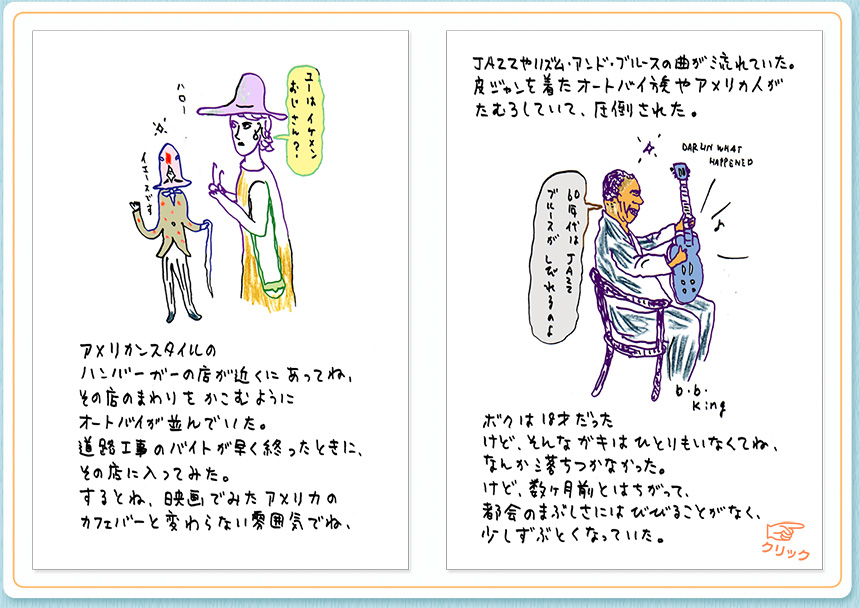 ハロー
イエースです
ユーは イケメン
おじさん？
アメリカンスタイルの
ハンバーガーの店が近くに あってね、
その店のまわりを かこむように
オートバイが並んでいた。
道路工事のバイトが早く終ったときに、
その店に入ってみた。
するとね、映画でみたアメリカの
カフェバーと変わらない雰囲気でね、
JAZZやリズム・アンド・ブルースの曲が流れていた。
皮ジャンを着たオートバイ族やアメリカ人が
たむろしていて、圧倒された。
DARLIN WHAT
HAPPENED
60年代は JAZZ
ブルースが しびれるのよ
b.b.
King
ボクは 18才だった
けど、そんなガキは ひとりもいなくてね、
なんか落ちつかなかった。
けど、数ヶ月前とはちがって、
都会のまぶしさには びびることがなく、
少しずぶとくなっていた。
クリック